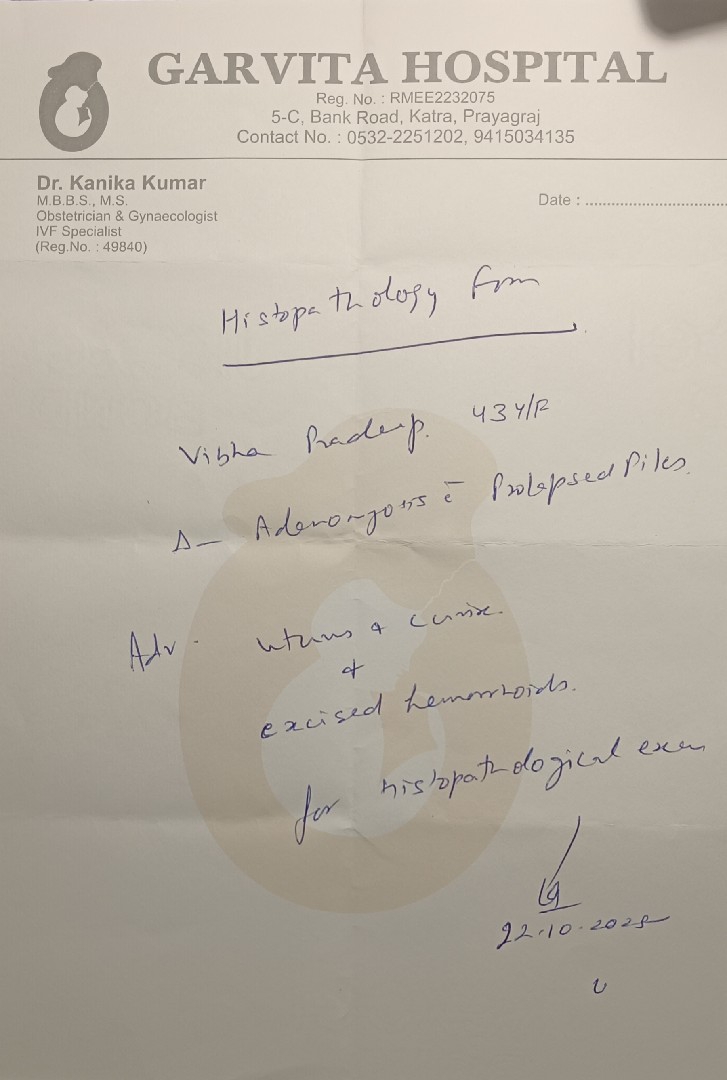 GARVITA HOSPITAL
Reg. No. : RMEE2232075
5-C, Bank Road, Katra, Prayagraj
Contact No. : 0532-2251202, 9415034135
Dr. Kanika Kumar
M.B.B.S., M.S.
Obstetrician & Gynaecologist
IVF Specialist
(Reg.No. : 49840)
Date : ................................
Histopathology Form
Vibha Pradeep. 43Y/F
Δ— Adenomyosis c̄ Prolapsed Piles.
Adv. uterus & cervix.
&
excised hemorrhoids.
for histopathological exam
22.10.2025